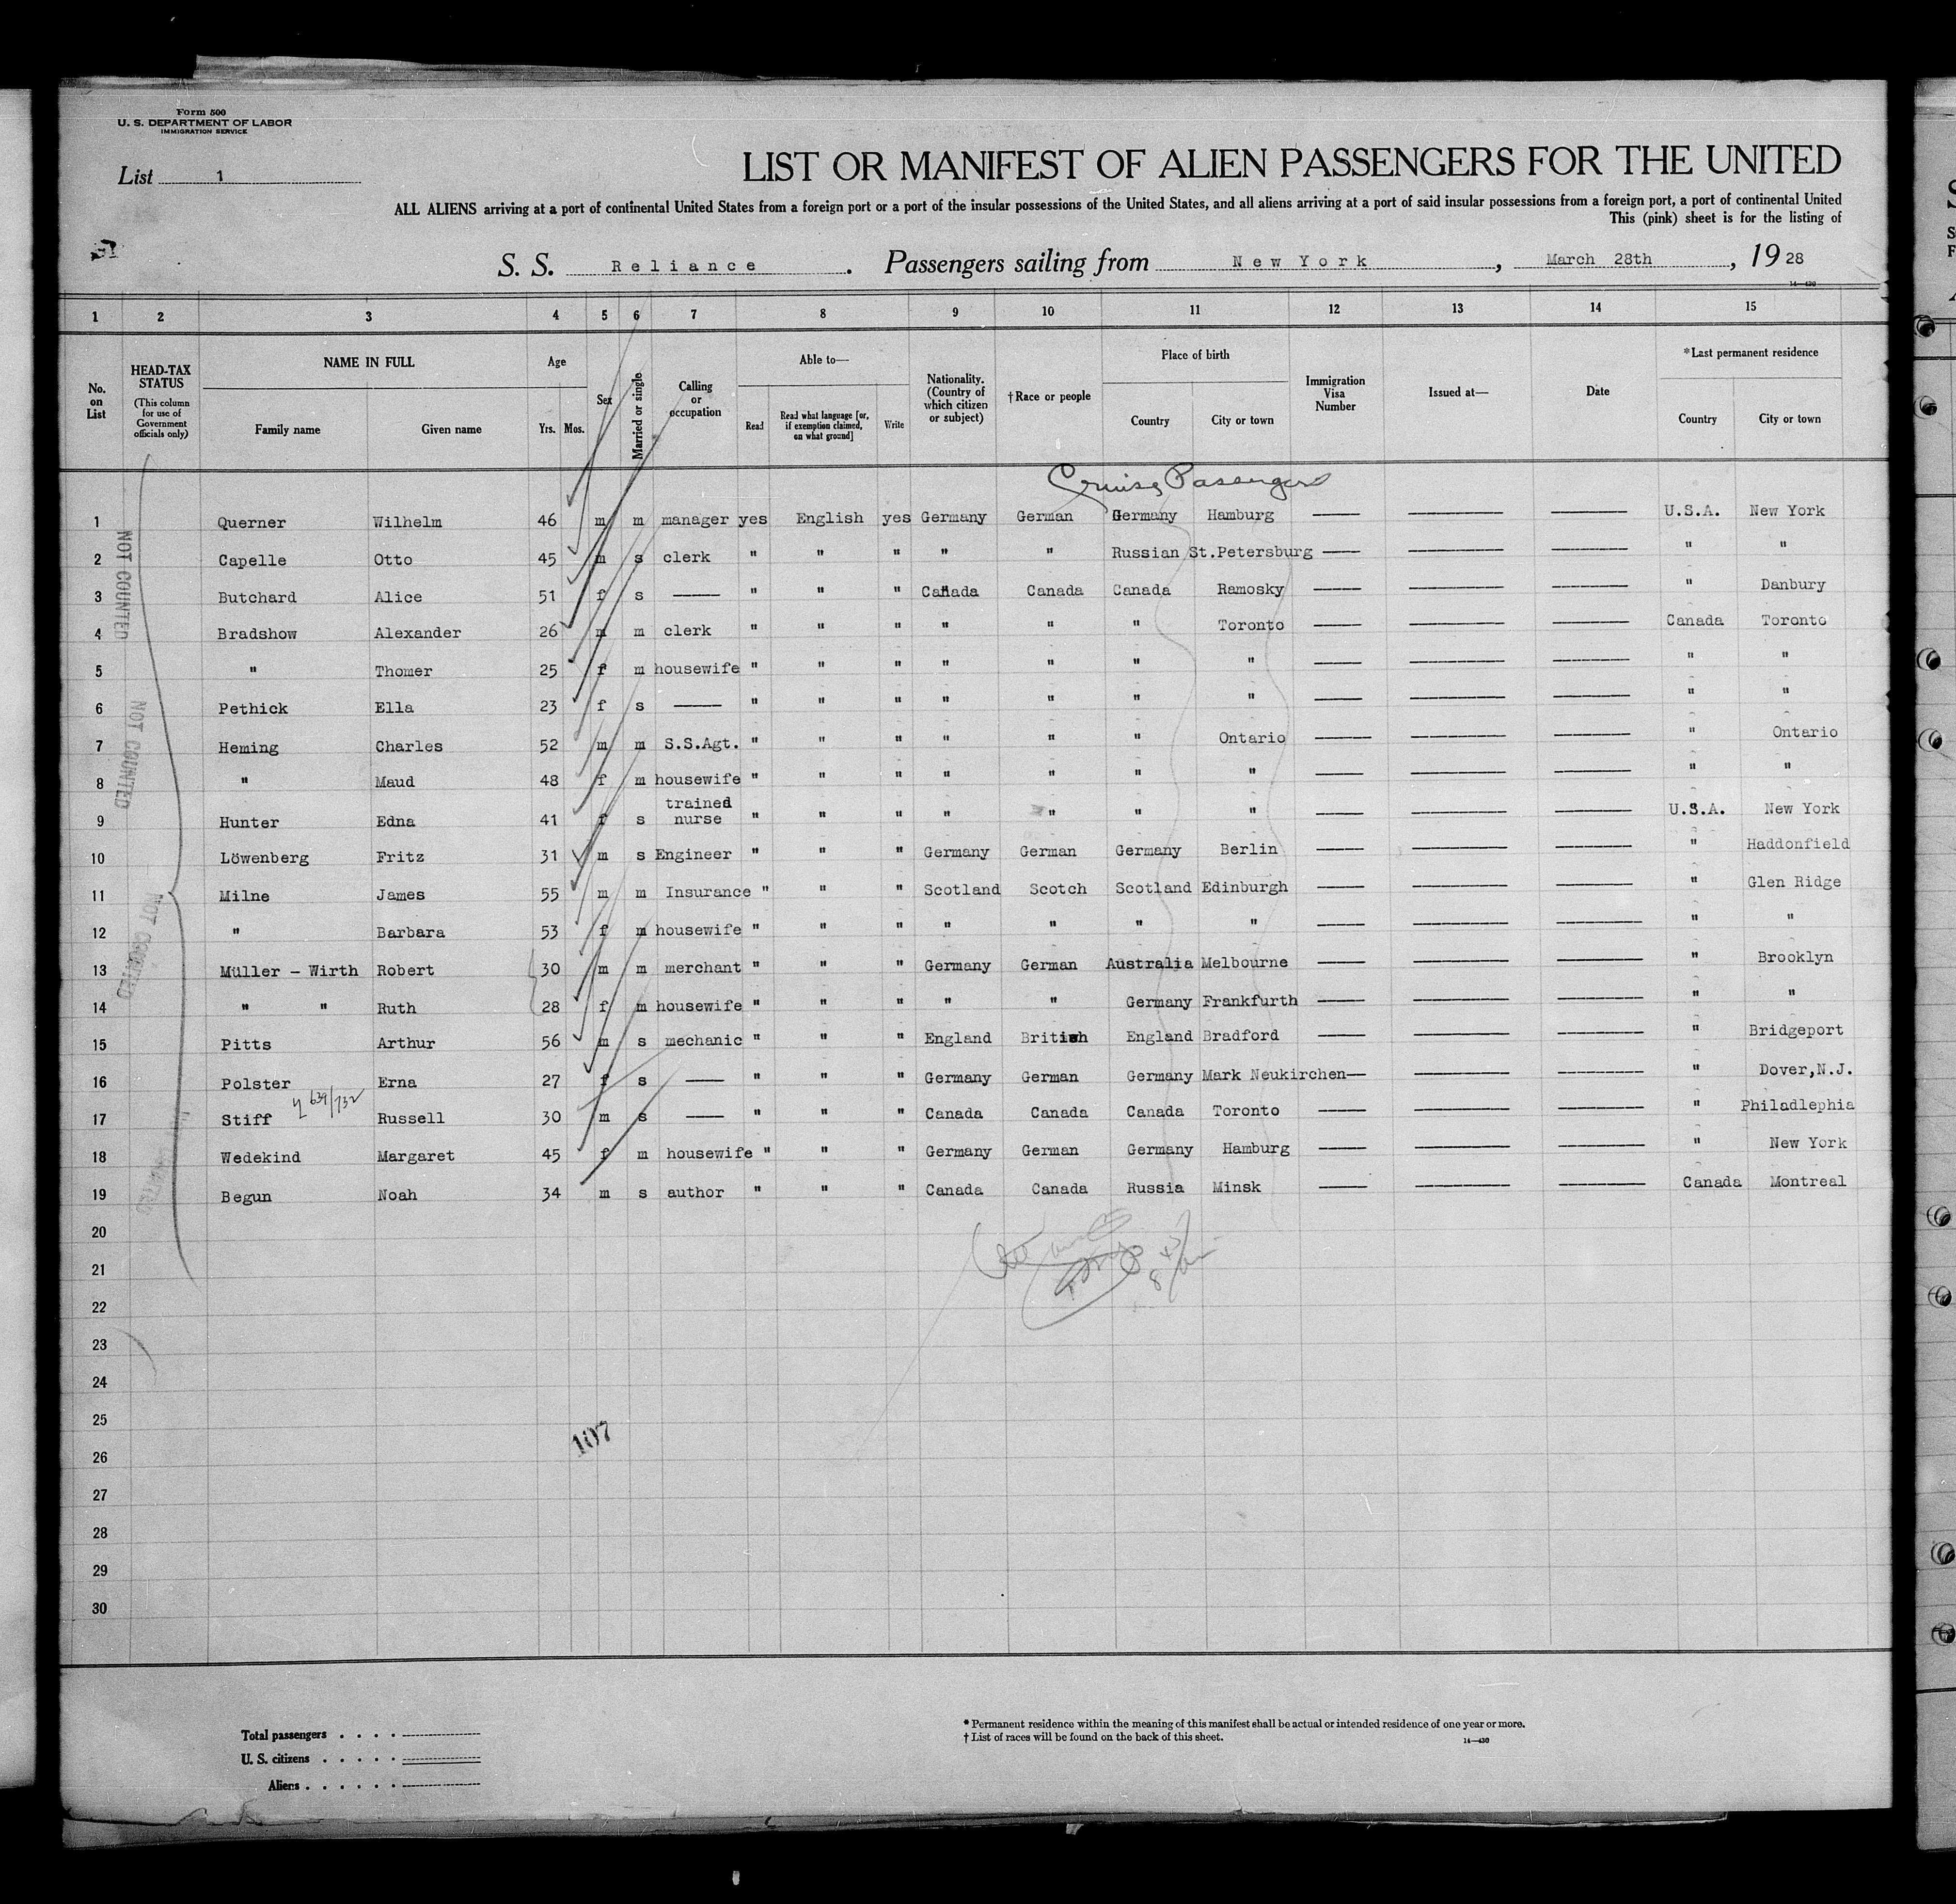 Form 500
U. S. DEPARTMENT OF LABOR
IMMIGRATION SERVICE
List 1
LIST OR MANIFEST OF ALIEN PASSENGERS FOR THE UNITED
ALL ALIENS arriving at a port of continental United States from a foreign port or a port of the insular possessions of the United States, and all aliens arriving at a port of said insular possessions from a foreign port, a port of continental United
This (pink) sheet is for the listing of
S. S. Reliance. Passengers sailing from New York, March 28th, 1928
14—430
1 2 3 4 5 6 7 8 9 10 11 12 13 14 15
No. on List
HEAD-TAX STATUS (This column for use of Government officials only)
NAME IN FULL Family name Given name
Age Yrs. Mos.
Sex
Married or single
Calling or occupation
Able to— Read Read what language [or, if exemption claimed, on what ground] Write
Nationality. (Country of which citizen or subject)
†Race or people
Place of birth Country City or town
Immigration Visa Number
Issued at—
Date
*Last permanent residence Country City or town
Cruise Passengers
1 Querner Wilhelm 46 m m manager yes English yes Germany German Germany Hamburg —— —— —— U.S.A. New York
2 Capelle Otto 45 m s clerk " " " " " Russian St.Petersburg —— —— —— " "
3 Butchard Alice 51 f s —— " " " Canada Canada Canada Ramosky —— —— —— " Danbury
4 Bradshow Alexander 26 m m clerk " " " " " " Toronto —— —— —— Canada Toronto
5 " Thomer 25 f m housewife " " " " " " " —— —— —— " "
6 Pethick Ella 23 f s —— " " " " " " " —— —— —— " "
7 Heming Charles 52 m m S.S.Agt. " " " " " " Ontario —— —— —— " Ontario
8 " Maud 48 f m housewife " " " " " " " —— —— —— " "
9 Hunter Edna 41 f s trained nurse " " " " " " " —— —— —— U.S.A. New York
10 Löwenberg Fritz 31 m s Engineer " " " Germany German Germany Berlin —— —— —— " Haddonfield
11 Milne James 55 m m Insurance " " " Scotland Scotch Scotland Edinburgh —— —— —— " Glen Ridge
12 " Barbara 53 f m housewife " " " " " " " —— —— —— " "
13 Müller - Wirth Robert 30 m m merchant " " " Germany German Australia Melbourne —— —— —— " Brooklyn
14 " " Ruth 28 f m housewife " " " " " Germany Frankfurth —— —— —— " "
15 Pitts Arthur 56 m s mechanic " " " England British England Bradford —— —— —— " Bridgeport
16 Polster Erna 27 f s —— " " " Germany German Germany Mark Neukirchen —— —— —— " Dover,N.J.
639/732
17 Stiff Russell 30 m s —— " " " Canada Canada Canada Toronto —— —— —— " Philadlephia
18 Wedekind Margaret 45 f m housewife " " " Germany German Germany Hamburg —— —— —— " New York
19 Begun Noah 34 m s author " " " Canada Canada Russia Minsk —— —— —— Canada Montreal
20
21
22
23
24
25
26
27
28
29
30
NOT COUNTED
NOT COUNTED
NOT COUNTED
107
Total passengers
U. S. citizens
Aliens
* Permanent residence within the meaning of this manifest shall be actual or intended residence of one year or more.
† List of races will be found on the back of this sheet.
14—430